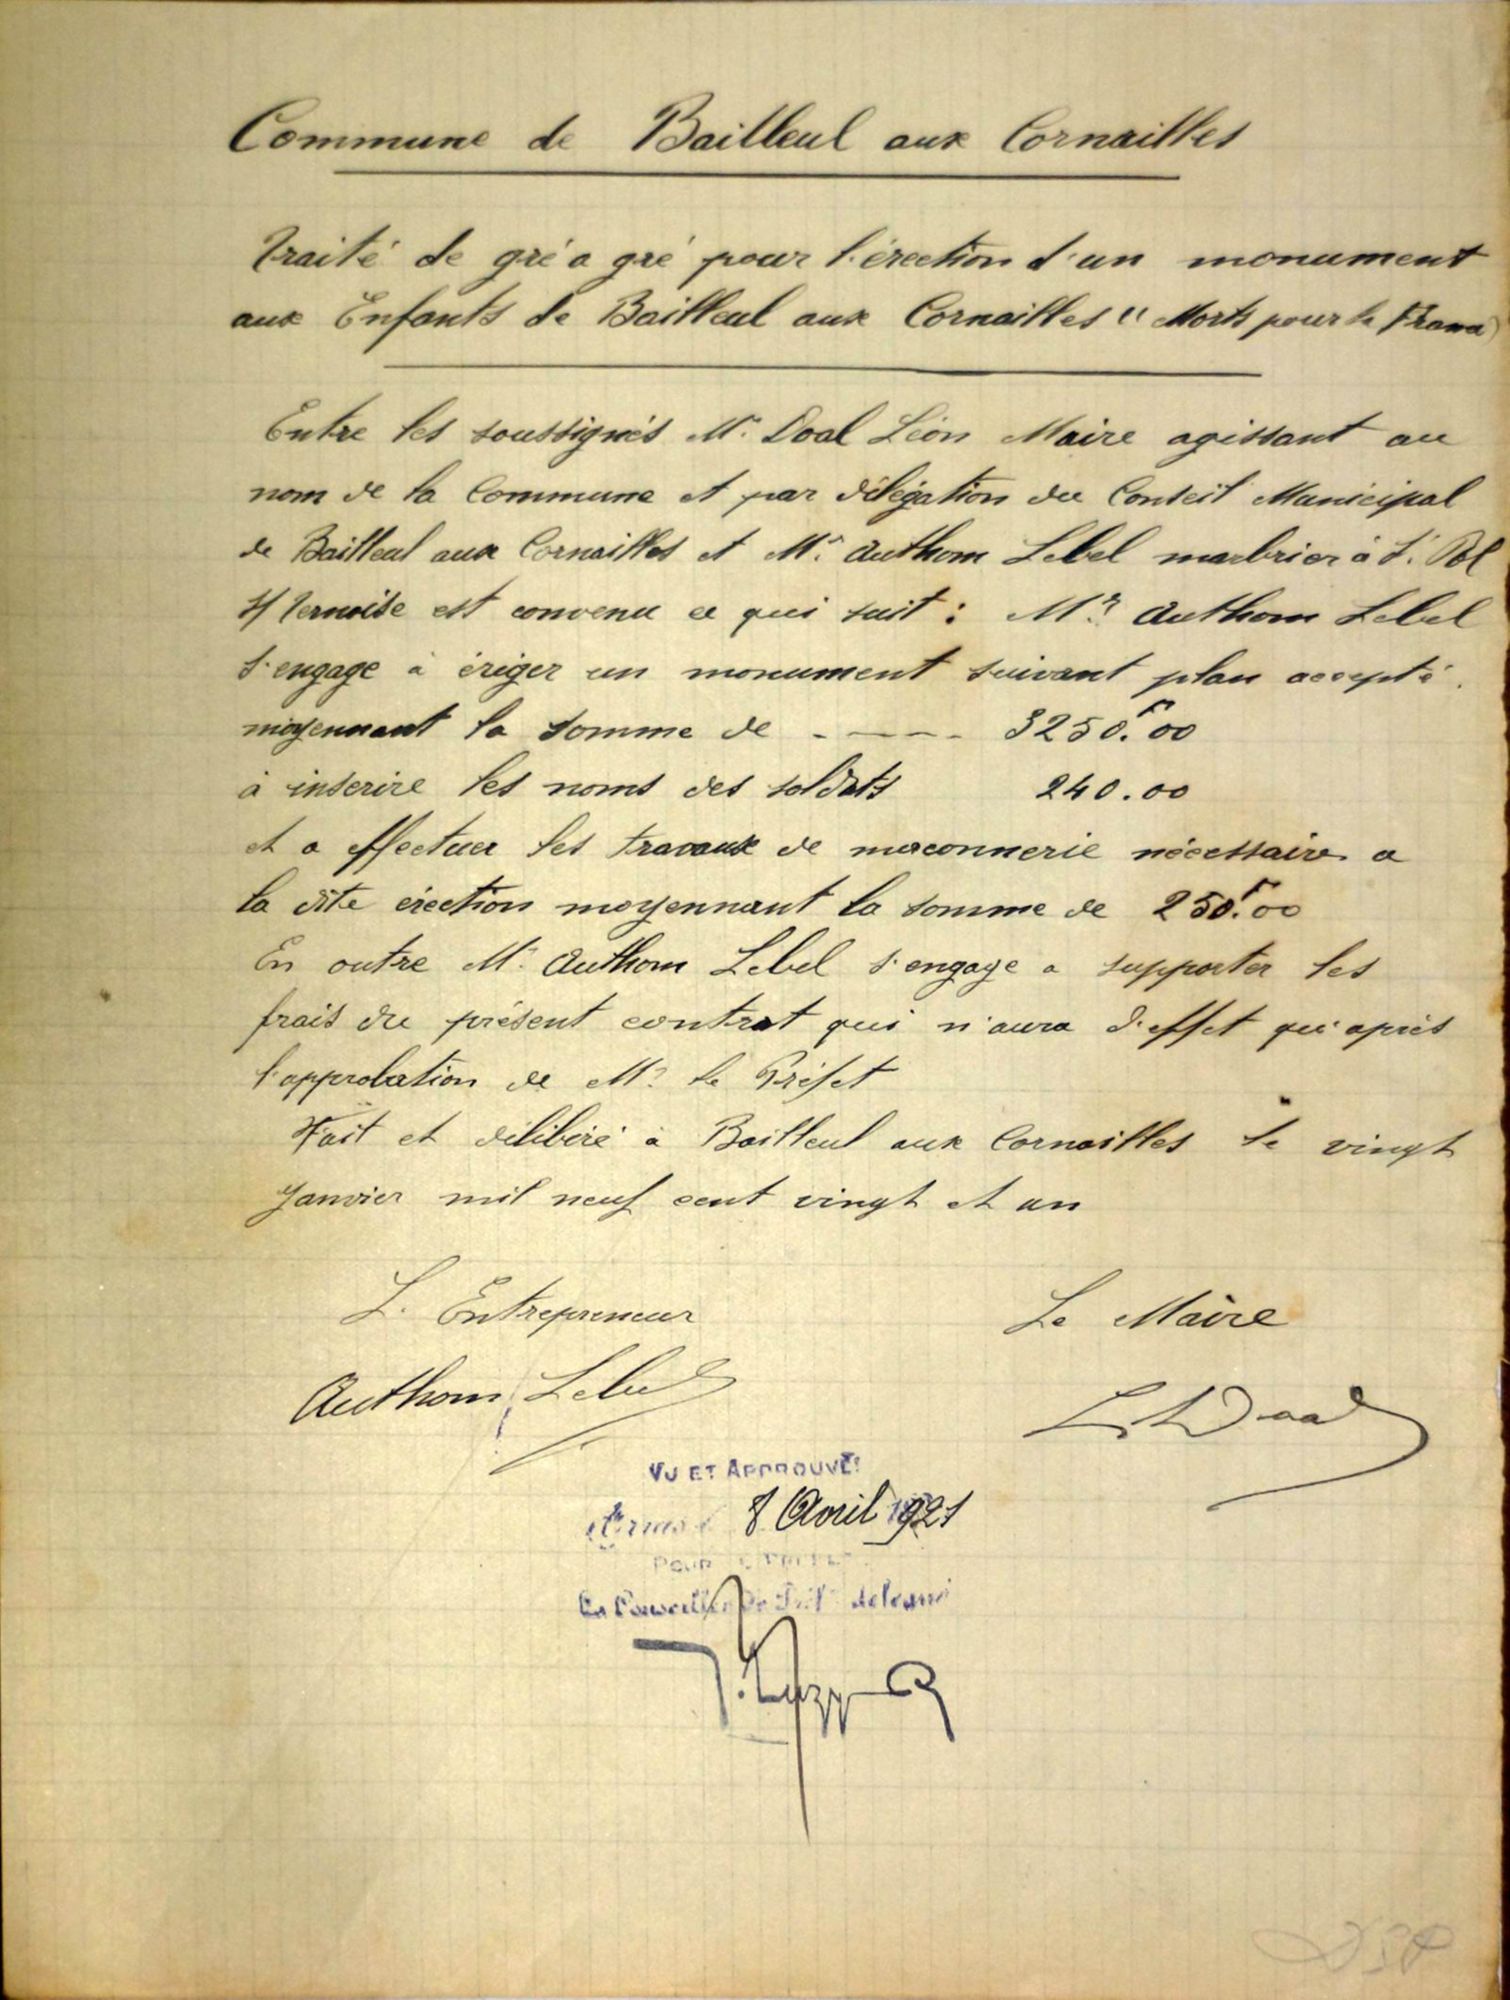 Commune de Bailleul aux Cornailles
Traité de gré a gré pour l'érection d'un monument
aux Enfants de Bailleul aux Cornailles " Morts pour la France
Entre les soussignés Mr. Doal Léon Maire agissant au
nom de la Commune et par délégation du Conseil Municipal
de Bailleul aux Cornailles et Mr. Authom Lebel marbrier à St. Pol
s/ Ternoise est convenu ce qui suit : Mr. Authom Lebel
s'engage à ériger un monument suivant plan accepté.
moyennant la somme de - - - - - 3250.F00
à inscrire les noms des soldats 240.00
et a effectuer les travaux de maconnerie nécessaires a
la dite érection moyennant la somme de 250.F00
En outre Mr. Authom Lebel s'engage a supporter les
frais du présent contrat qui n'aura d'effet qu'après
l'approbation de Mr. le Préfet
Fait et délibéré à Bailleul aux Cornailles le vingt
Janvier mil neuf cent vingt et un
L'Entrepreneur
Le Maire
Authom Lebel
L. Doal
VU ET APPROUVÉ:
8 Avril 1921
POUR
Le Conseiller de Préf. délégué